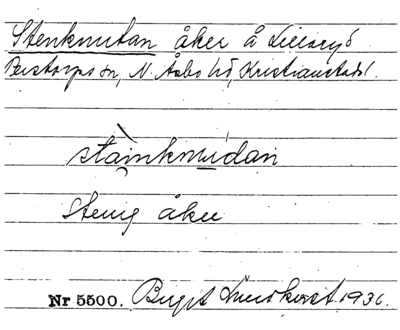 Stenknutan åker å Lillaryd
Perstorps sn, N. Åsbo hd, Kristianstads l.
stàinknudan
Stenig åker
Nr 5500. Birgit Lundkvist 1936.